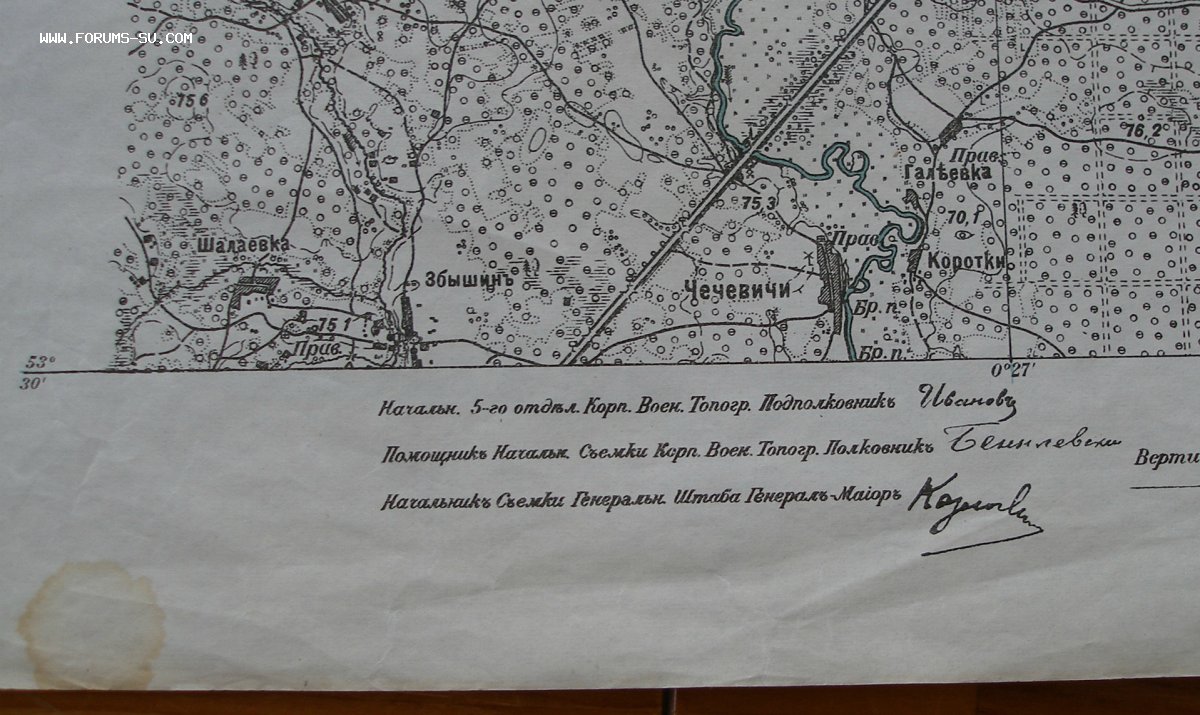 WWW.FORUMS-SU.COM
75 6
76,2
Прав.
Галѣевка
75,3
70,1
Шалаевка
Прав.
Збышинъ
Коротки
Чечевичи
Бр. п.
75 1
Прав.
Бр. п.
53°
30'
0°27'
Начальн. 5-го отдѣл. Корп. Воен. Топогр. Подполковникъ Ивановъ
Помощникъ Начальн. Съемки Корп. Воен. Топогр. Полковникъ
Верти
Начальникъ Съемки Генеральн. Штаба Генералъ-Маіоръ